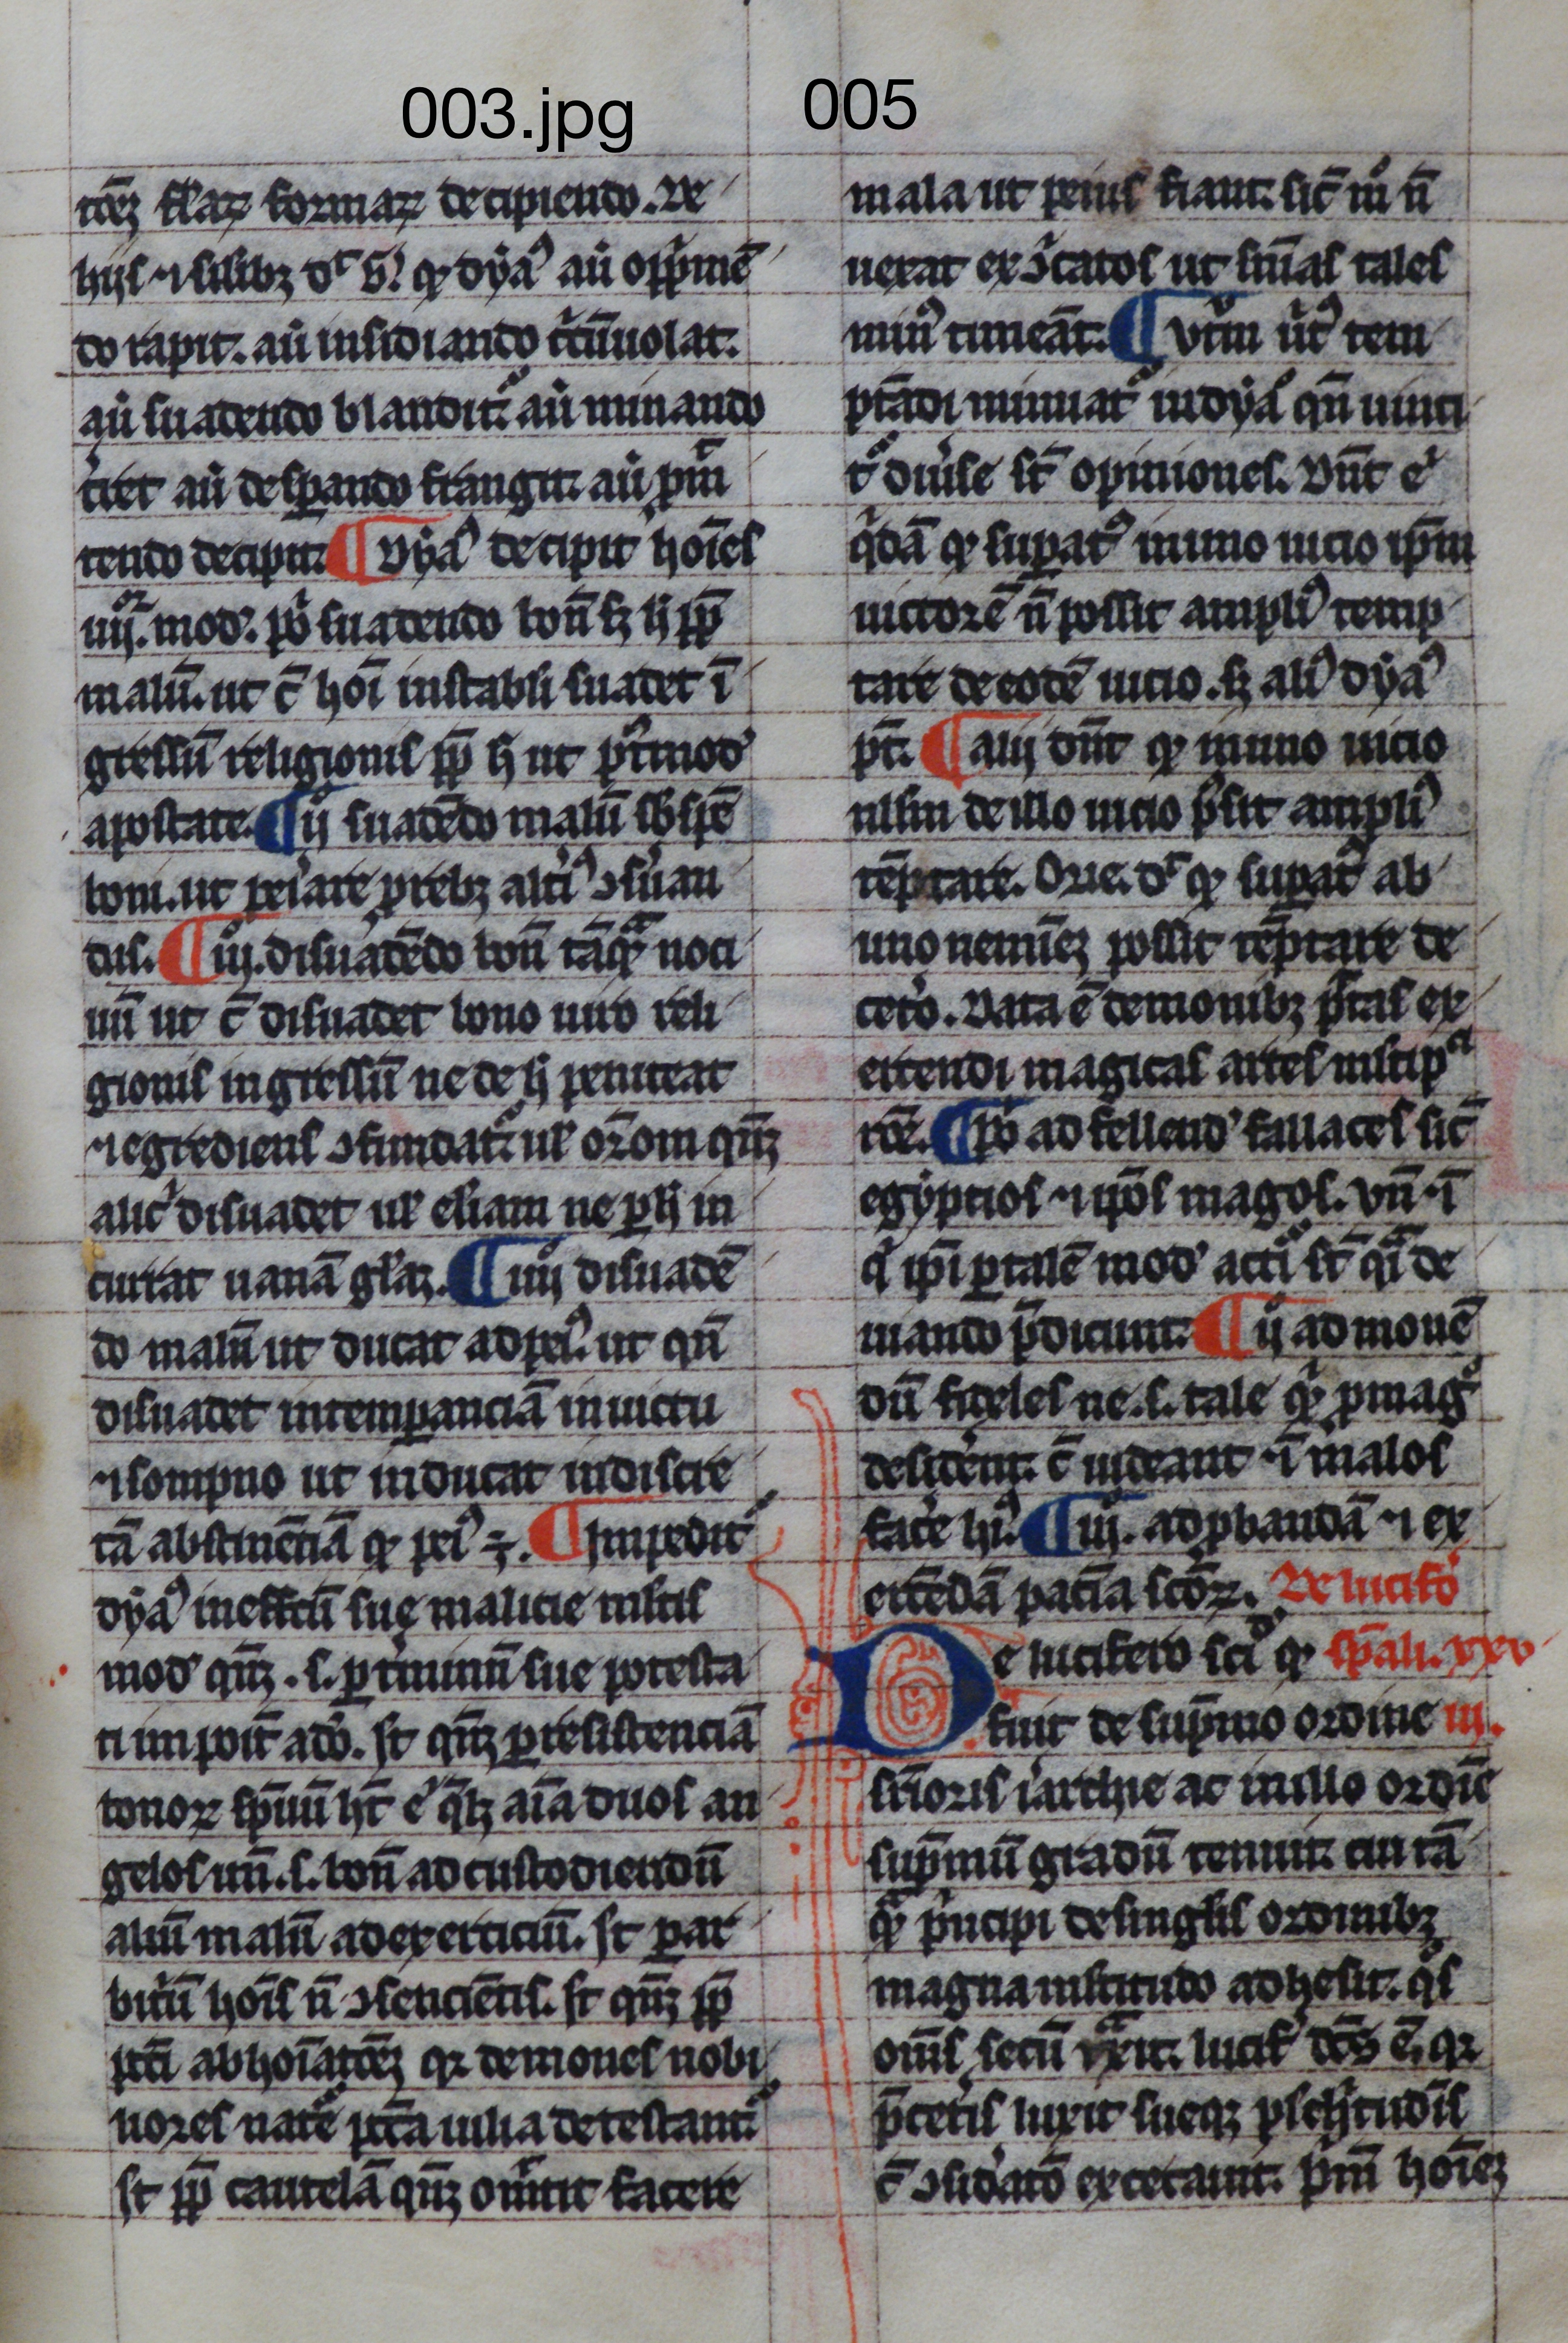 003.jpg
005
tōeꝫ fl̄aꝝ formaꝝ decipiendo. De
hijs ⁊ silibꝫ dr̄ b̾. qꝫ dyaꝰ aū opp̄mē
do rapit. aū insidiando cͥcūuolat.
aū suadendo blanditᷣ aū minando
tͥret aū despando frangit. aū pm̄
tendo decipit. ¶ Dyaꝰ decipit hoīes
iiij. mod̾. pͦ suadendo bon̄ sꝫ h̄ ꝓp̄
malū. ut c̄ hoī instabli suadet ī
gressū religionis ꝓp̄ h̄ ut
apostate. ¶ ijͦ suadēdo malū sb̾ spē
boni. ut
dis. ¶ iijͦ. disuadēdo bon̄ tāqͣꝫ noci
uū ut c̄ disuadet bono uiro reli
gionis ingressū ne de h̄ peniteat
⁊ egrediens ꝯfundatᷣ. ul̾ or̄om qn̄qꝫ
alic̾ disuadet ul̾ eliam ne ꝑ h̄ in
currat uanā gl̄aꝫ. ¶ iiijͦ disuadē
do malū ut ducat ad peiꝰ. ut qn̄
disuadet intemꝑanciā in uictu
⁊ sompno ut inducat indiscre
tā abstinēciā qꝫ peiꝰ ÷. ¶ Impeditᷣ
dyaꝰ in effc̄tū sue malicie mltis
mod̾ qn̄qꝫ. s. ꝑ tͥminū sue potesta
ti impoit̄ ad̾o. st̄ qn̄qꝫ ꝑ resistenciā
bonoꝝ sp̄uū ht̄ e̾ qͥlibꝫ aīa duos an
gelos un̄. s. bon̄ ad custodiendū
aliū malū ad exerciciū. st̄ ꝑ ar
bitͥū hoīs n̄ ꝯsencientis. st̄ qn̄qꝫ ꝓp̄
pcc̄i abhoīatōeꝫ qꝛ demones nobi
liores nat̾e pcc̄a uilia detestantᷣ.
st̄ ꝓp̄ cautelā qn̄qꝫ omͥttit facere
mala ut peius fiant. sic̄ mͦ n̄
uexat exͨcatos ut simͣas tales
minꝰ timeāt. ¶ Vtͬm ūtꝰ tem
ptādi minuatᷣ in dyaͦ qn̄ uinci
tᷣ diu̾se st̄ opiniones. Dnt̄ e̾
qͥdā qꝫ suꝑatꝰ in uno uicio ip̄m
uictorē n̄ possit ampliꝰ temp
tare de eodē uicio. sꝫ aliꝰ dyaꝰ
pt̄. ¶ Alij dn̄t qꝫ in uno uicio
ullum de illo uicio pͦsit ampliꝰ
tēptare. Orig. dr̄ qꝫ suꝑatꝰ ab
uno neminēꝫ possit tēptare de
cet̾o. Data ē demonibꝫ pͭtas ex
ercendi magicas artes mͭlipͨi
rōe. ¶ pͦ ad fellend̾ fallaces sic̄
egyptios ⁊ ipōs magos. Vn̄ ⁊ ī
qͥ ip̄i ꝑ talē mod̾ acciͦ st̄ qͣi de
mando p̄dicunt. ¶ ijͦ ad monē
dū fideles ne. s. tale qͥꝫ p mag̾
desid̾ent. c̄ uideant ⁊ ī malos
fac̾e hͥꝰ. ¶ iij. ad ꝓbandā ⁊ ex
ercēdā paciā sc̄oꝝ. De lucif̾o
De lucifero sciᷣ qꝫ sp̄ali. xxv
fuit de sup̄mo ordine iij.
sup̄ioris i̾archie ac in illo ordiē
sup̄mū gradū tenuit. cui tā
qͣꝫ pͥncipi de singlis ordinibꝫ
magna mltitudo adhesit. qͦs
om̄s secū tͣxit. lucif̾ dc̄s ē. qꝛ
p̄cet̾is luxit sueqꝫ plchͥtudīs
c̄ ꝯsid̾atō excecauit. pͥm̄ hoīeꝫ